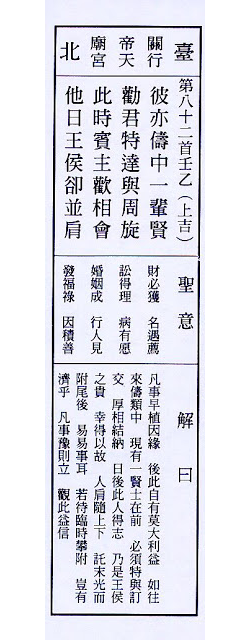 臺北
關行
帝天
廟宮
第八十二首壬乙(上吉)
彼亦儔中一輩賢
勸君特達與周旋
此時賓主歡相會
他日王侯卻並肩
聖意
財必獲 名遇薦
訟得理 病有愿
婚姻成 行人見
發福祿 因積善
解曰
凡事早植因緣 後此自有莫大利益 如往
來儔類中 現有一賢士在前 必須特與訂
交 厚相結納 日後此人得志 乃是王侯
之貴 幸得以故 人肩隨上下 託末光而
附尾後 易易事耳 若待臨時攀附 豈有
濟乎 凡事豫則立 觀此益信